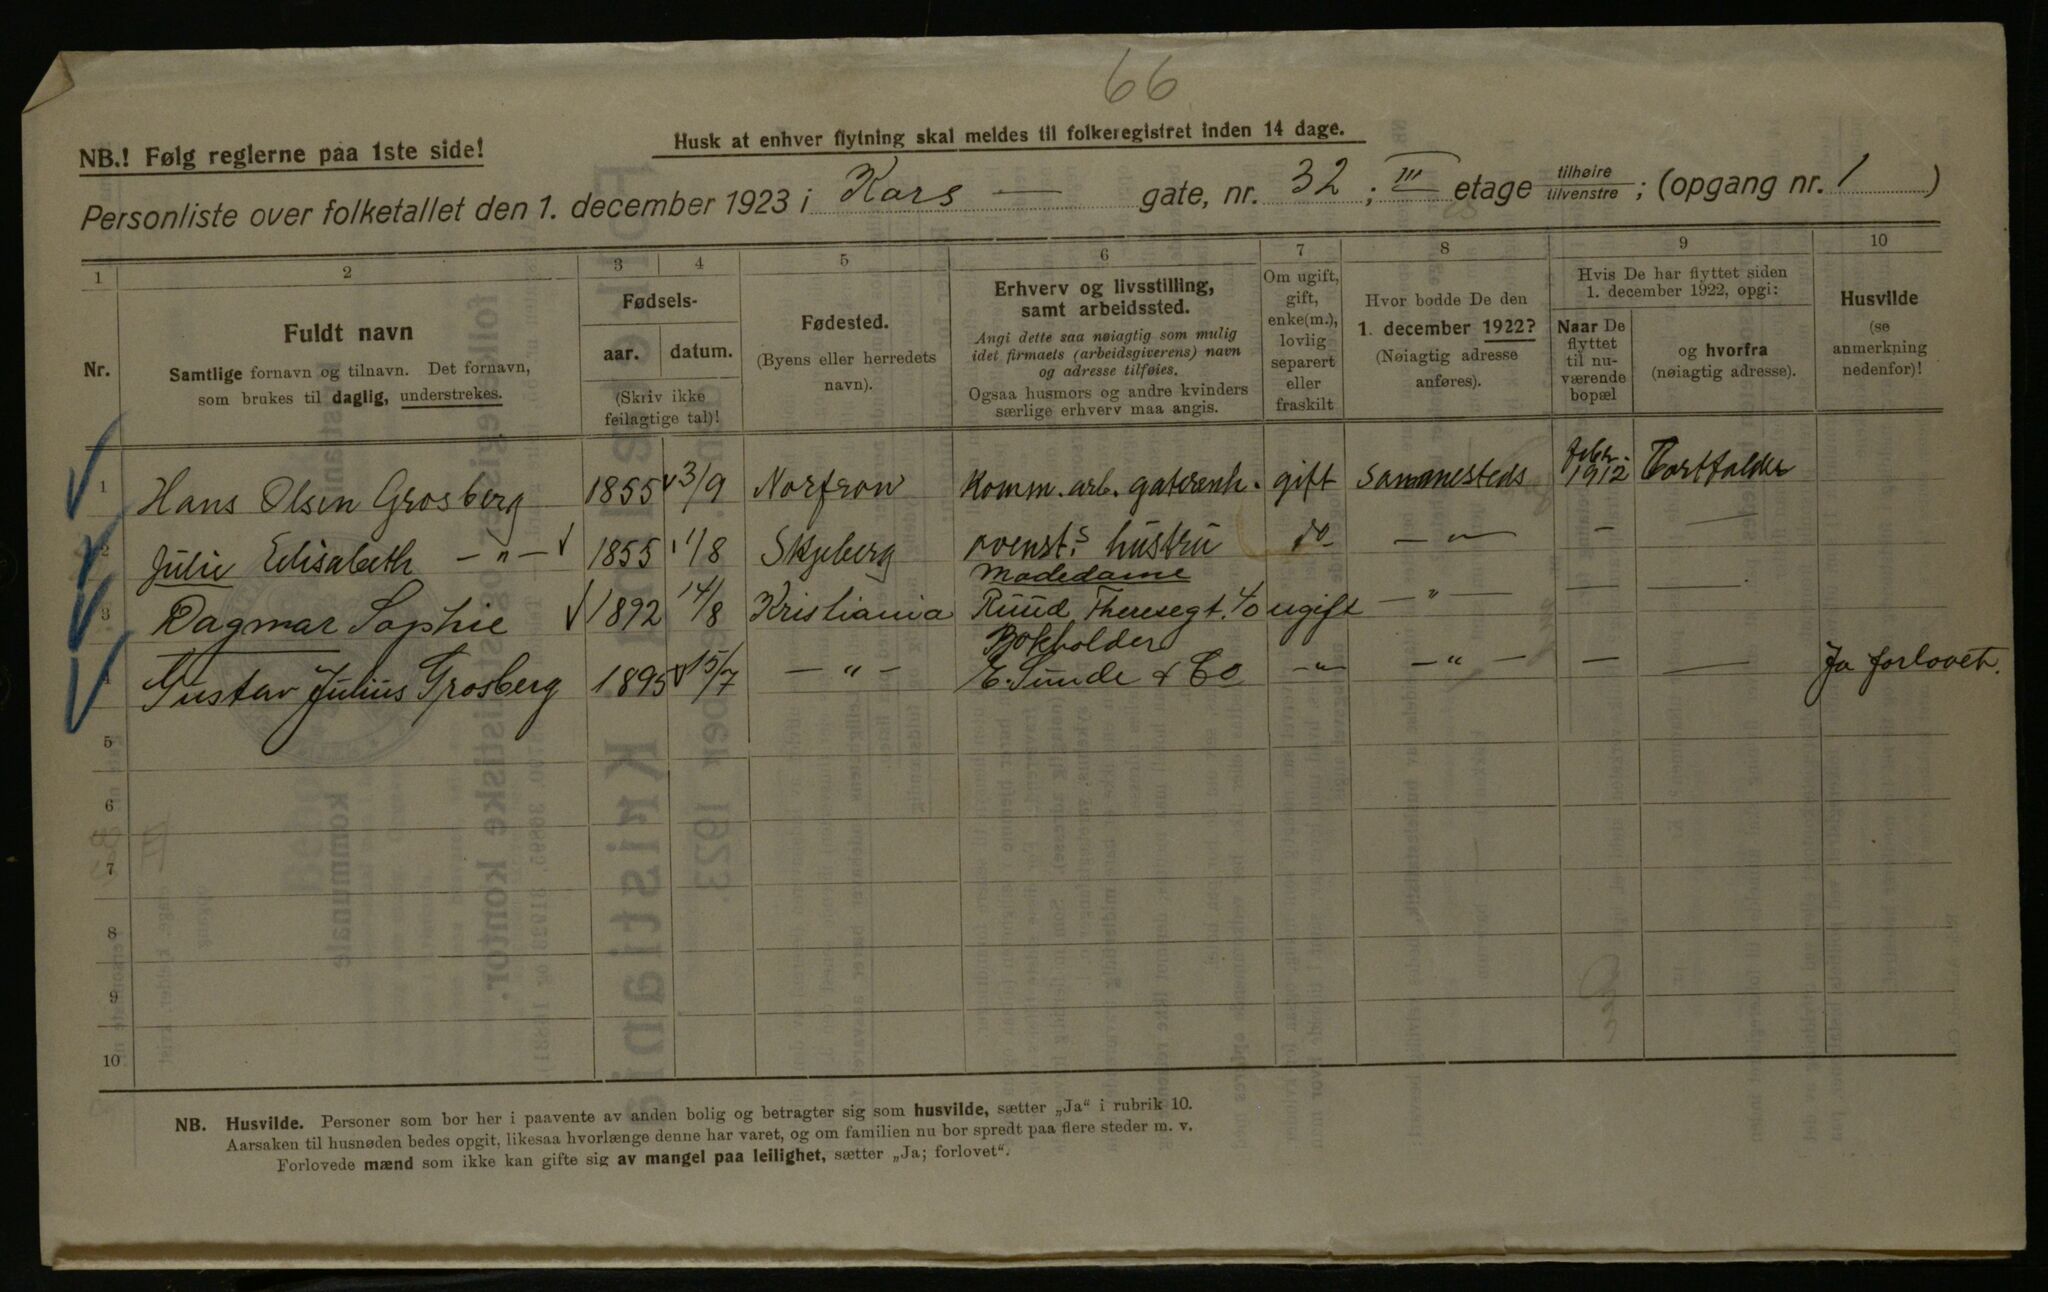 66
Husk at enhver flytning skal meldes til folkeregistret inden 14 dage.
NB.! Følg reglerne paa 1ste side!
Personliste over folketallet den 1. december 1923 i Kors — gate, nr. 32 ; III etage tilhøire / tilvenstre ; (opgang nr. 1 )
1 2 3 4 5 6 7 8 9 10
Nr.
Fuldt navn
Samtlige fornavn og tilnavn. Det fornavn,
som brukes til daglig, understrekes.
Fødsels-
aar. datum.
(Skriv ikke
feilagtige tal)!
Fødested.
(Byens eller herredets
navn).
Erhverv og livsstilling,
samt arbeidssted.
Angi dette saa nøiagtig som mulig
idet firmaets (arbeidsgiverens) navn
og adresse tilføies.
Ogsaa husmors og andre kvinders
særlige erhverv maa angis.
Om ugift,
gift,
enke(m.),
lovlig
separert
eller
fraskilt
Hvor bodde De den
1. december 1922?
(Nøiagtig adresse
anføres).
Hvis De har flyttet siden
1. december 1922, opgi:
Naar De
flyttet
til nu-
værende
bopæl
og hvorfra
(nøiagtig adresse).
Husvilde
(se
anmerkning
nedenfor)!
1 Hans Olsen Grosberg 1855 3/9 Norfron Komm. arb. gaterenh. gift Sammesteds febr. 1912
2 Julie Elisabeth — " — 1855 11/8 Skjeberg ovenst.s hustru do — " — — —
Modedame
3 Dagmar Sophie 1892 14/8 Kristiania Ruud Theresegt. 40 ugift — " — — —
Bokholder
4 Gustav Julius Grosberg 1895 15/7 — " — E. Sunde & Co — " — — " — — — Ja forlovet.
5
6
7
8
9
10
NB. Husvilde. Personer som bor her i paavente av anden bolig og betragter sig som husvilde, sætter „Ja“ i rubrik 10.
Aarsaken til husnøden bedes opgit, likesaa hvorlænge denne har varet, og om familien nu bor spredt paa flere steder m. v.
Forlovede mænd som ikke kan gifte sig av mangel paa leilighet, sætter „Ja; forlovet“.